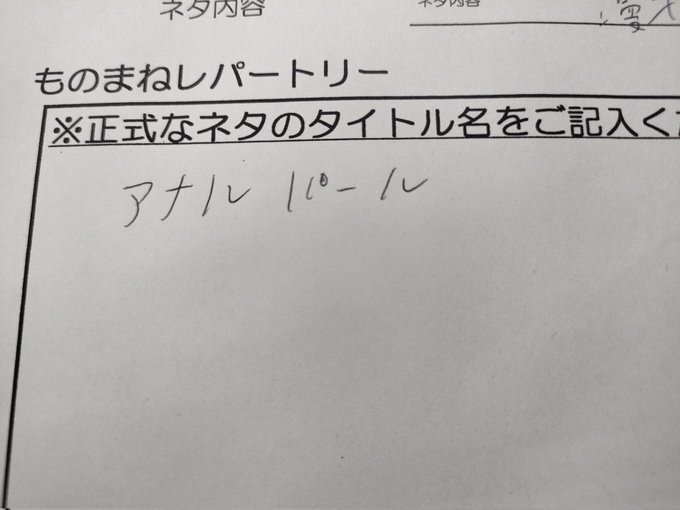 ネタ内容 ネタ内容 漫才
ものまねレパートリー
※正式なネタのタイトル名をご記入くだ
アナル パール